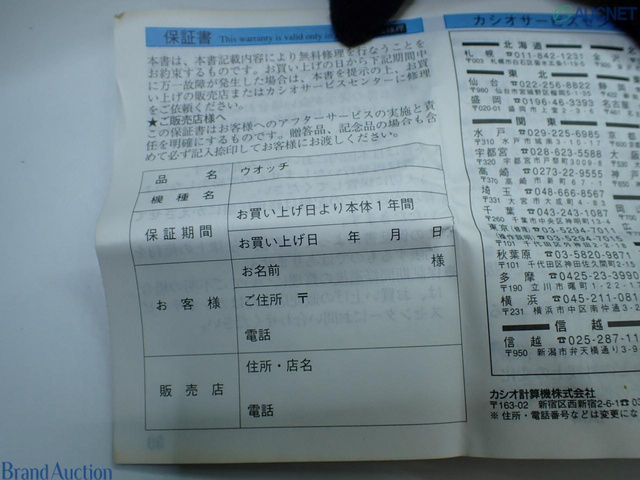 保証書 This warranty is valid only in
本書は、本書記載内容により無料修理を行なうことを
お約束するものです。お買い上げの日から下記期間中
に万一故障が発生した場合は、本書を提示の上、お買
い上げの販売店またはカシオサービスセンターに修理
をご依頼ください。
★ご販売店様へ
この保証書はお客様へのアフターサービスの実施と責
任を明確にするものです。贈答品、記念品の場合も含
めて必ず記入捺印してお客様にお渡しください。
品名 ウオッチ
機種名
保証期間 お買い上げ日より本体1年間
お買い上げ日 年 月 日
お客様 お名前 様
ご住所 〒
電話
販売店 住所・店名
電話
カシオサービスセン
北海道
札幌 ☎011-842-1231
〒003
東北
仙台 ☎022-256-8822
〒980
盛岡 ☎0196-46-3393
〒020-01 盛岡市上堂2-4-3
関東
水戸 ☎029-225-6985
〒310 水戸市城南3-10-17
宇都宮 ☎028-623-5588
〒320
高崎 ☎0273-22-9555
〒370 高崎市新町67-1
埼玉 ☎048-666-8567
〒331 大宮市大成町4-8
千葉 ☎043-243-1087
〒260 千葉市中央区神明町13-4
東京 ☎03-5294-7011
☎03-5294-7015
〒101
秋葉原 ☎03-5820-9871
〒101 千代田区神田佐久間町
多摩 ☎0425-23-3999
〒190 立川市曙町1-22-17
横浜 ☎045-211-081
〒231 横浜市中区南仲通3-
信越
信越 ☎025-287-11
〒950 新潟市弁天橋通り3-9
カシオ計算機株式会社
〒163-02 新宿区西新宿2-6-1 ☎03
※住所・電話番号などは変更にな
Brand Auction